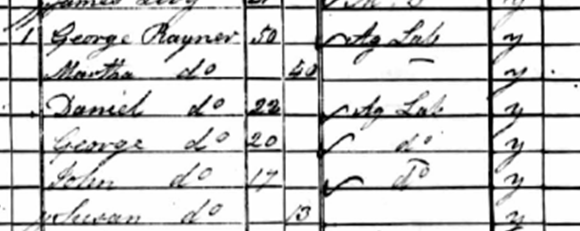 James
1 George Rayner 50 Ag Lab y
Martha do 40 — y
Daniel do 22 Ag Lab y
George do 20 do y
John do 17 do y
Susan do 13 y